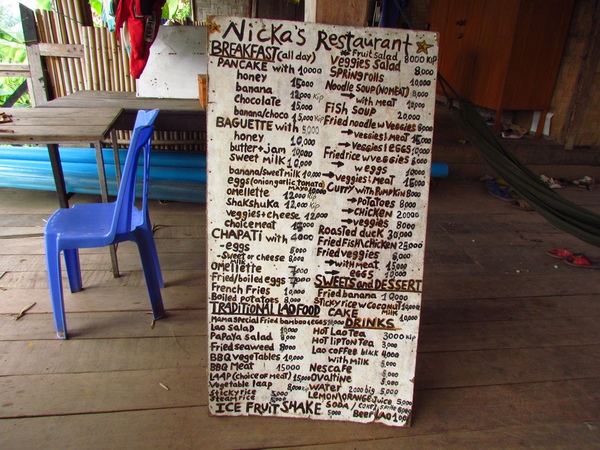 Nicka's Restaurant
BREAKFAST (all day)
PANCAKE with 10000
honey 15000
banana 12000 KIP
chocolate 15000
banana/choco 15,000
BAGUETTE with 5000
honey 10,000
butter+jam 10000
sweet milk 10,000
banana/swetmilk 10,000
eggs (onion garlic tomato)
omellette 12000 KIP
Shakshuka 12,000 KIP
veggies+cheese 12,000
choice meat 15000
CHAPATI with 4000
-eggs
-sweet milk or cheese 8,000
Omellette 7,000
Fried/boiled eggs 7000
French Fries 10,000
Boiled potatoes 8,000
TRADITIONAL LAO FOOD
Mama special fried bamboo (eggs)
Lao salad
Papaya salad
Fried seaweed 8000
BBQ vegetables 10,000
BBQ Meat 15000
LAAP (choice of meat) 15000
Vegetable laap 8,000
Sticky rice
Steam rice
ICE FRUIT SHAKE 5000
Fruit salad 8000 KIP
Veggies salad 8,000
Spring rolls 10,000
Noodle soup (NOMEAT)
→ with meat 10,000
Fish soup 20,000
Fried noodle w veggies 8000
→ veggies/meat 15,000
→ veggies/eggs 10,000
Fried rice w veggies 8000
→ w eggs 10,000
→ veggies/meat 15,000
Curry with pumpkin 8000
→ potatoes 8,000
→ chicken 20000
→ veggies 8,000
Roasted duck 30,000
Fried fish/chicken 25000
Fried veggies 8,000
→ with meat 15,000
→ eggs 10,000
SWEETS and DESSERT
Fried banana 10000
Sticky rice w/coconut milk
CAKE 10,000
DRINKS
Hot Lao Tea 3000 KIP
Hot Lipton Tea 3,000
Lao coffee black 4000
with milk 5,000
Nescafe
Ovaltine 5,000
WATER 2000 big 5,000
LEMON/ORANGE Juice 5,000
SODA
Beer Lao